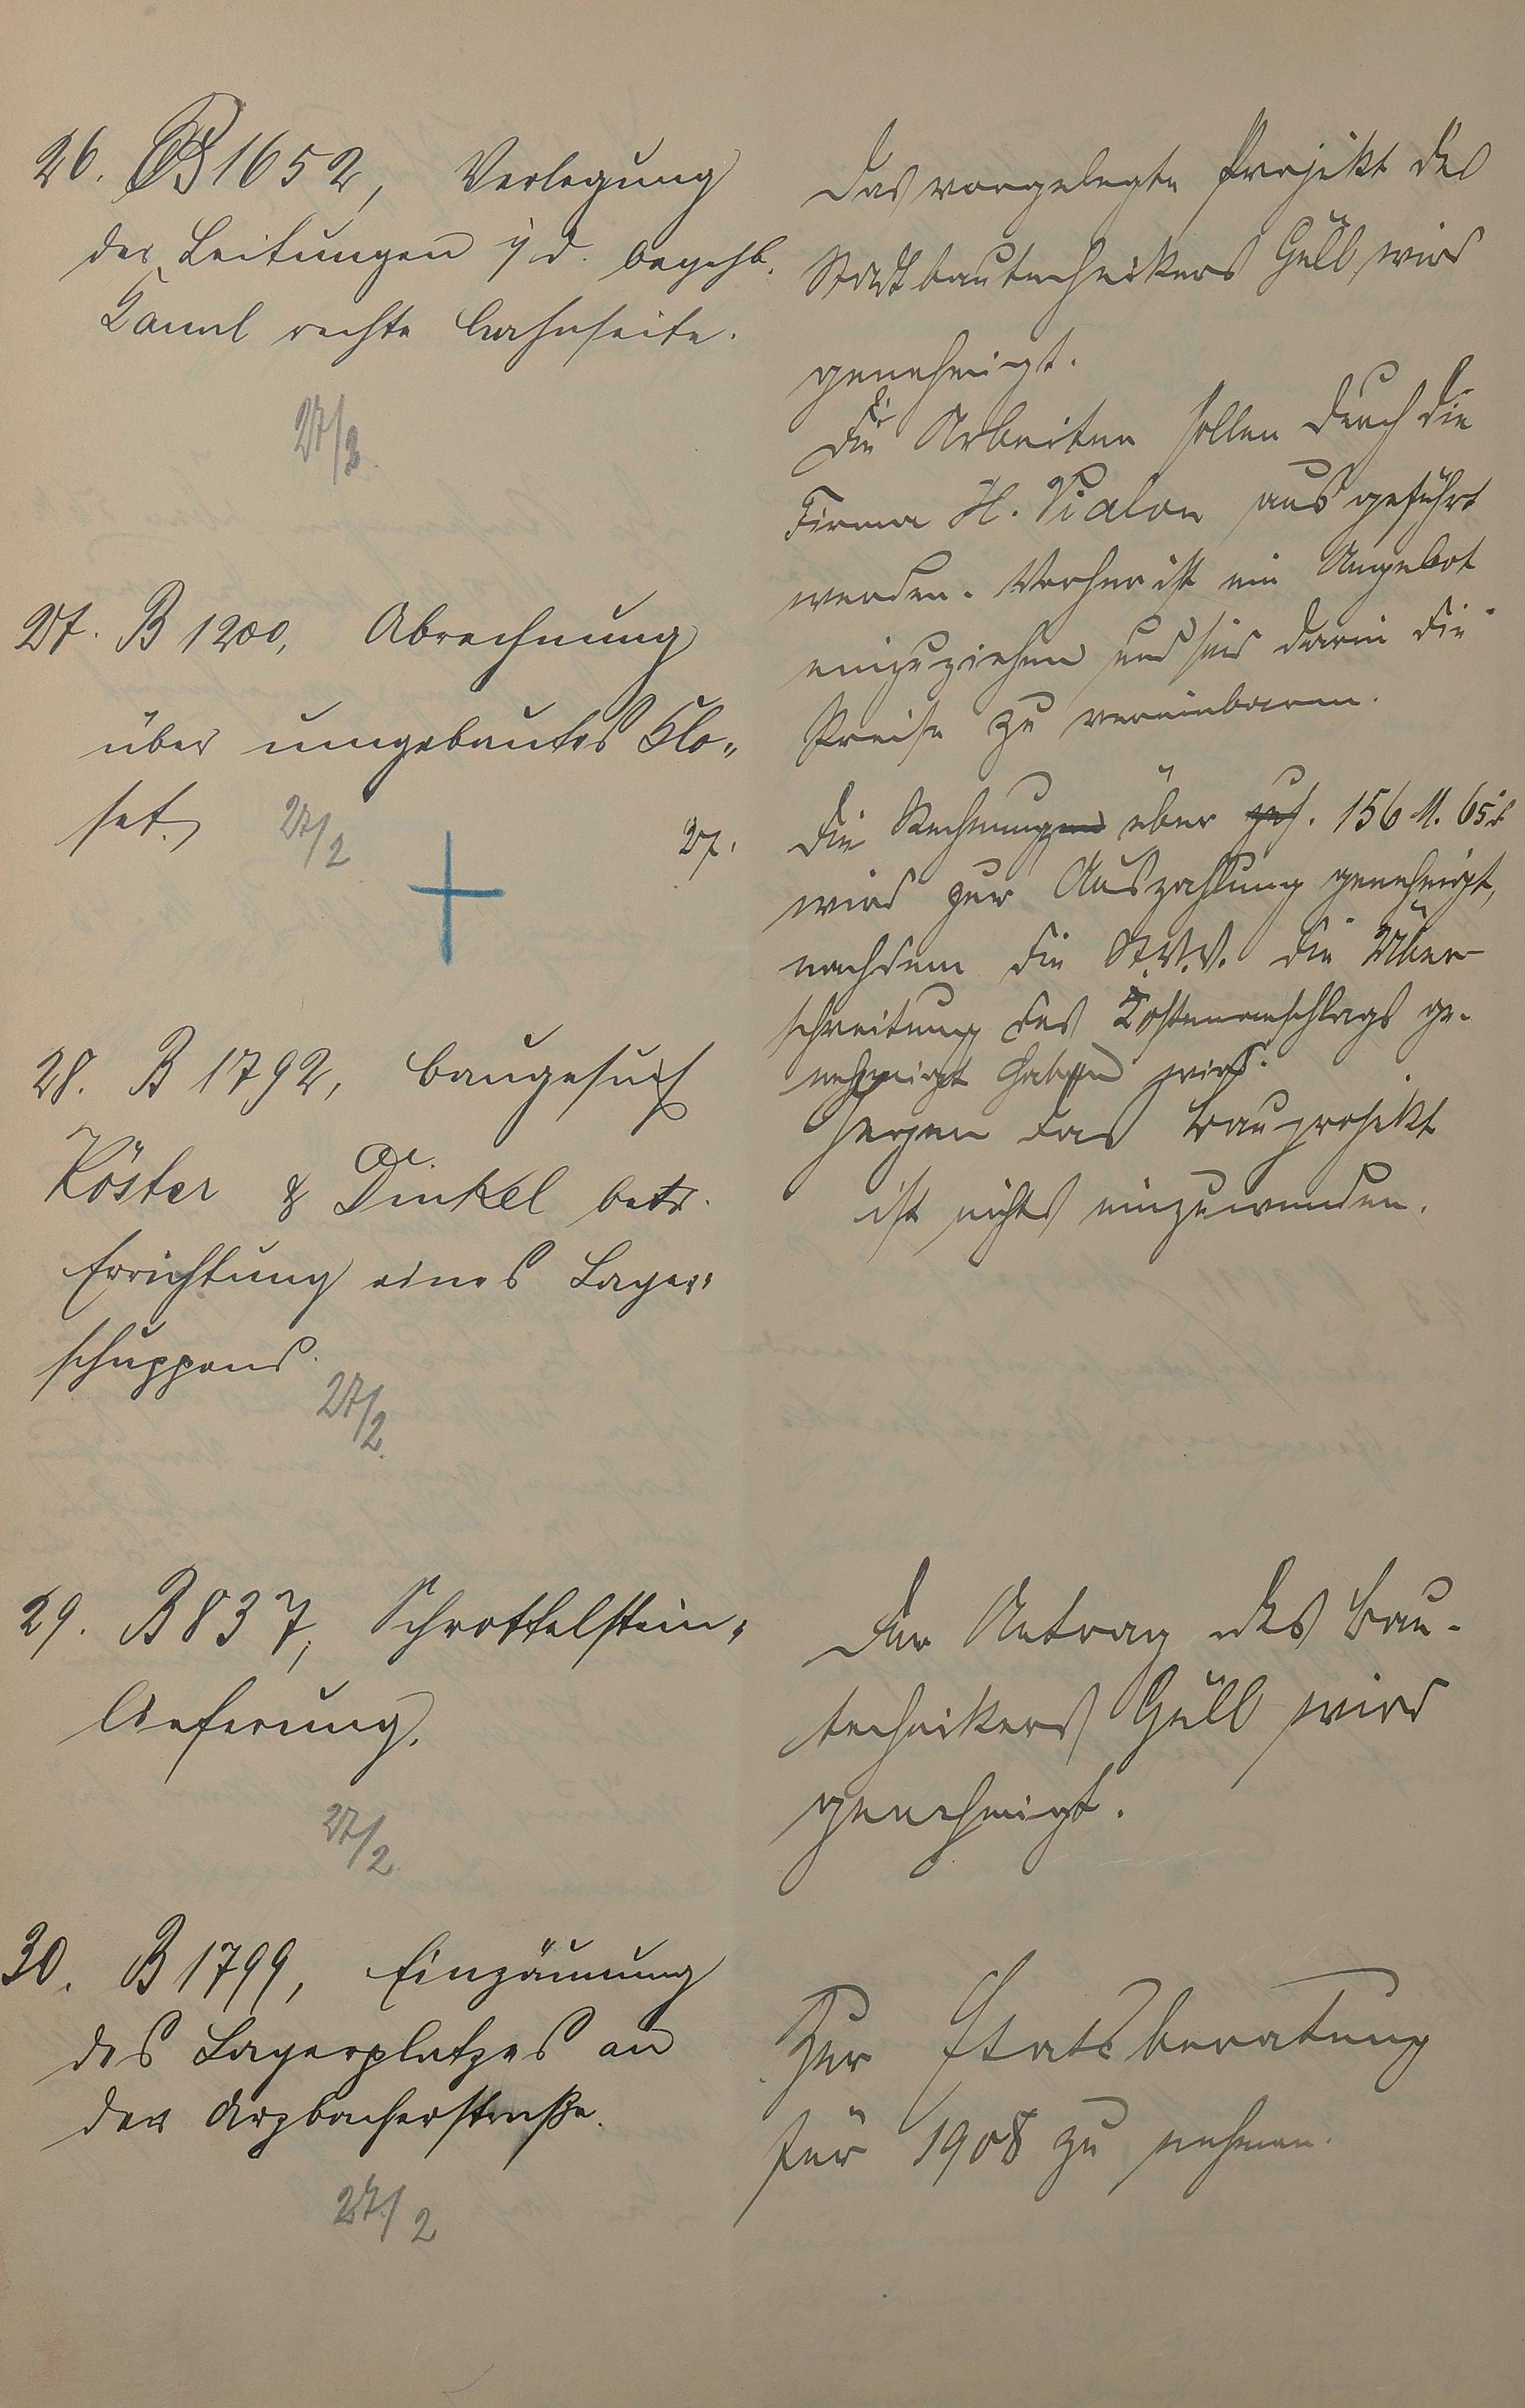 26. B 1652, Verlegung
der Leitungen i. d. begehb.
Kanal rechte Bahnseite.
27/2.
Das vorgelegte Projekt des
Stadtbautechnikers Güll wird
genehmigt.
Die Arbeiten sollen durch die
Firma H. Vialon ausgeführt
werden. Vorher ist ein Angebot
einzuziehen und sind darin die
Preise zu vereinbaren.
27. B 1200, Abrechnung
über umgebautes Klo-
set.
27/2
27.
Die Rechnungen über zus. 156 M. 65 ₰
wird zur Auszahlung genehmigt,
nachdem die St.V.V. die Über-
schreitung des Kostenanschlags ge-
nehmigt haben wird.
28. B 1792, Baugesuch
Köster & Cie. Dinkel betr.
Errichtung eines Lager-
schuppens.
27/2.
Gegen das Bauprojekt
ist nichts einzuwenden.
29. B 837, Schrottelstein-
lieferung.
27/2.
Der Antrag des Bau-
technikers Güll wird
genehmigt.
30. B 1799, Einzäunung
des Lagerplatzes an
der Arzbacherstraße.
27./2
Zur Etatsberatung
für 1908 zu nehmen.